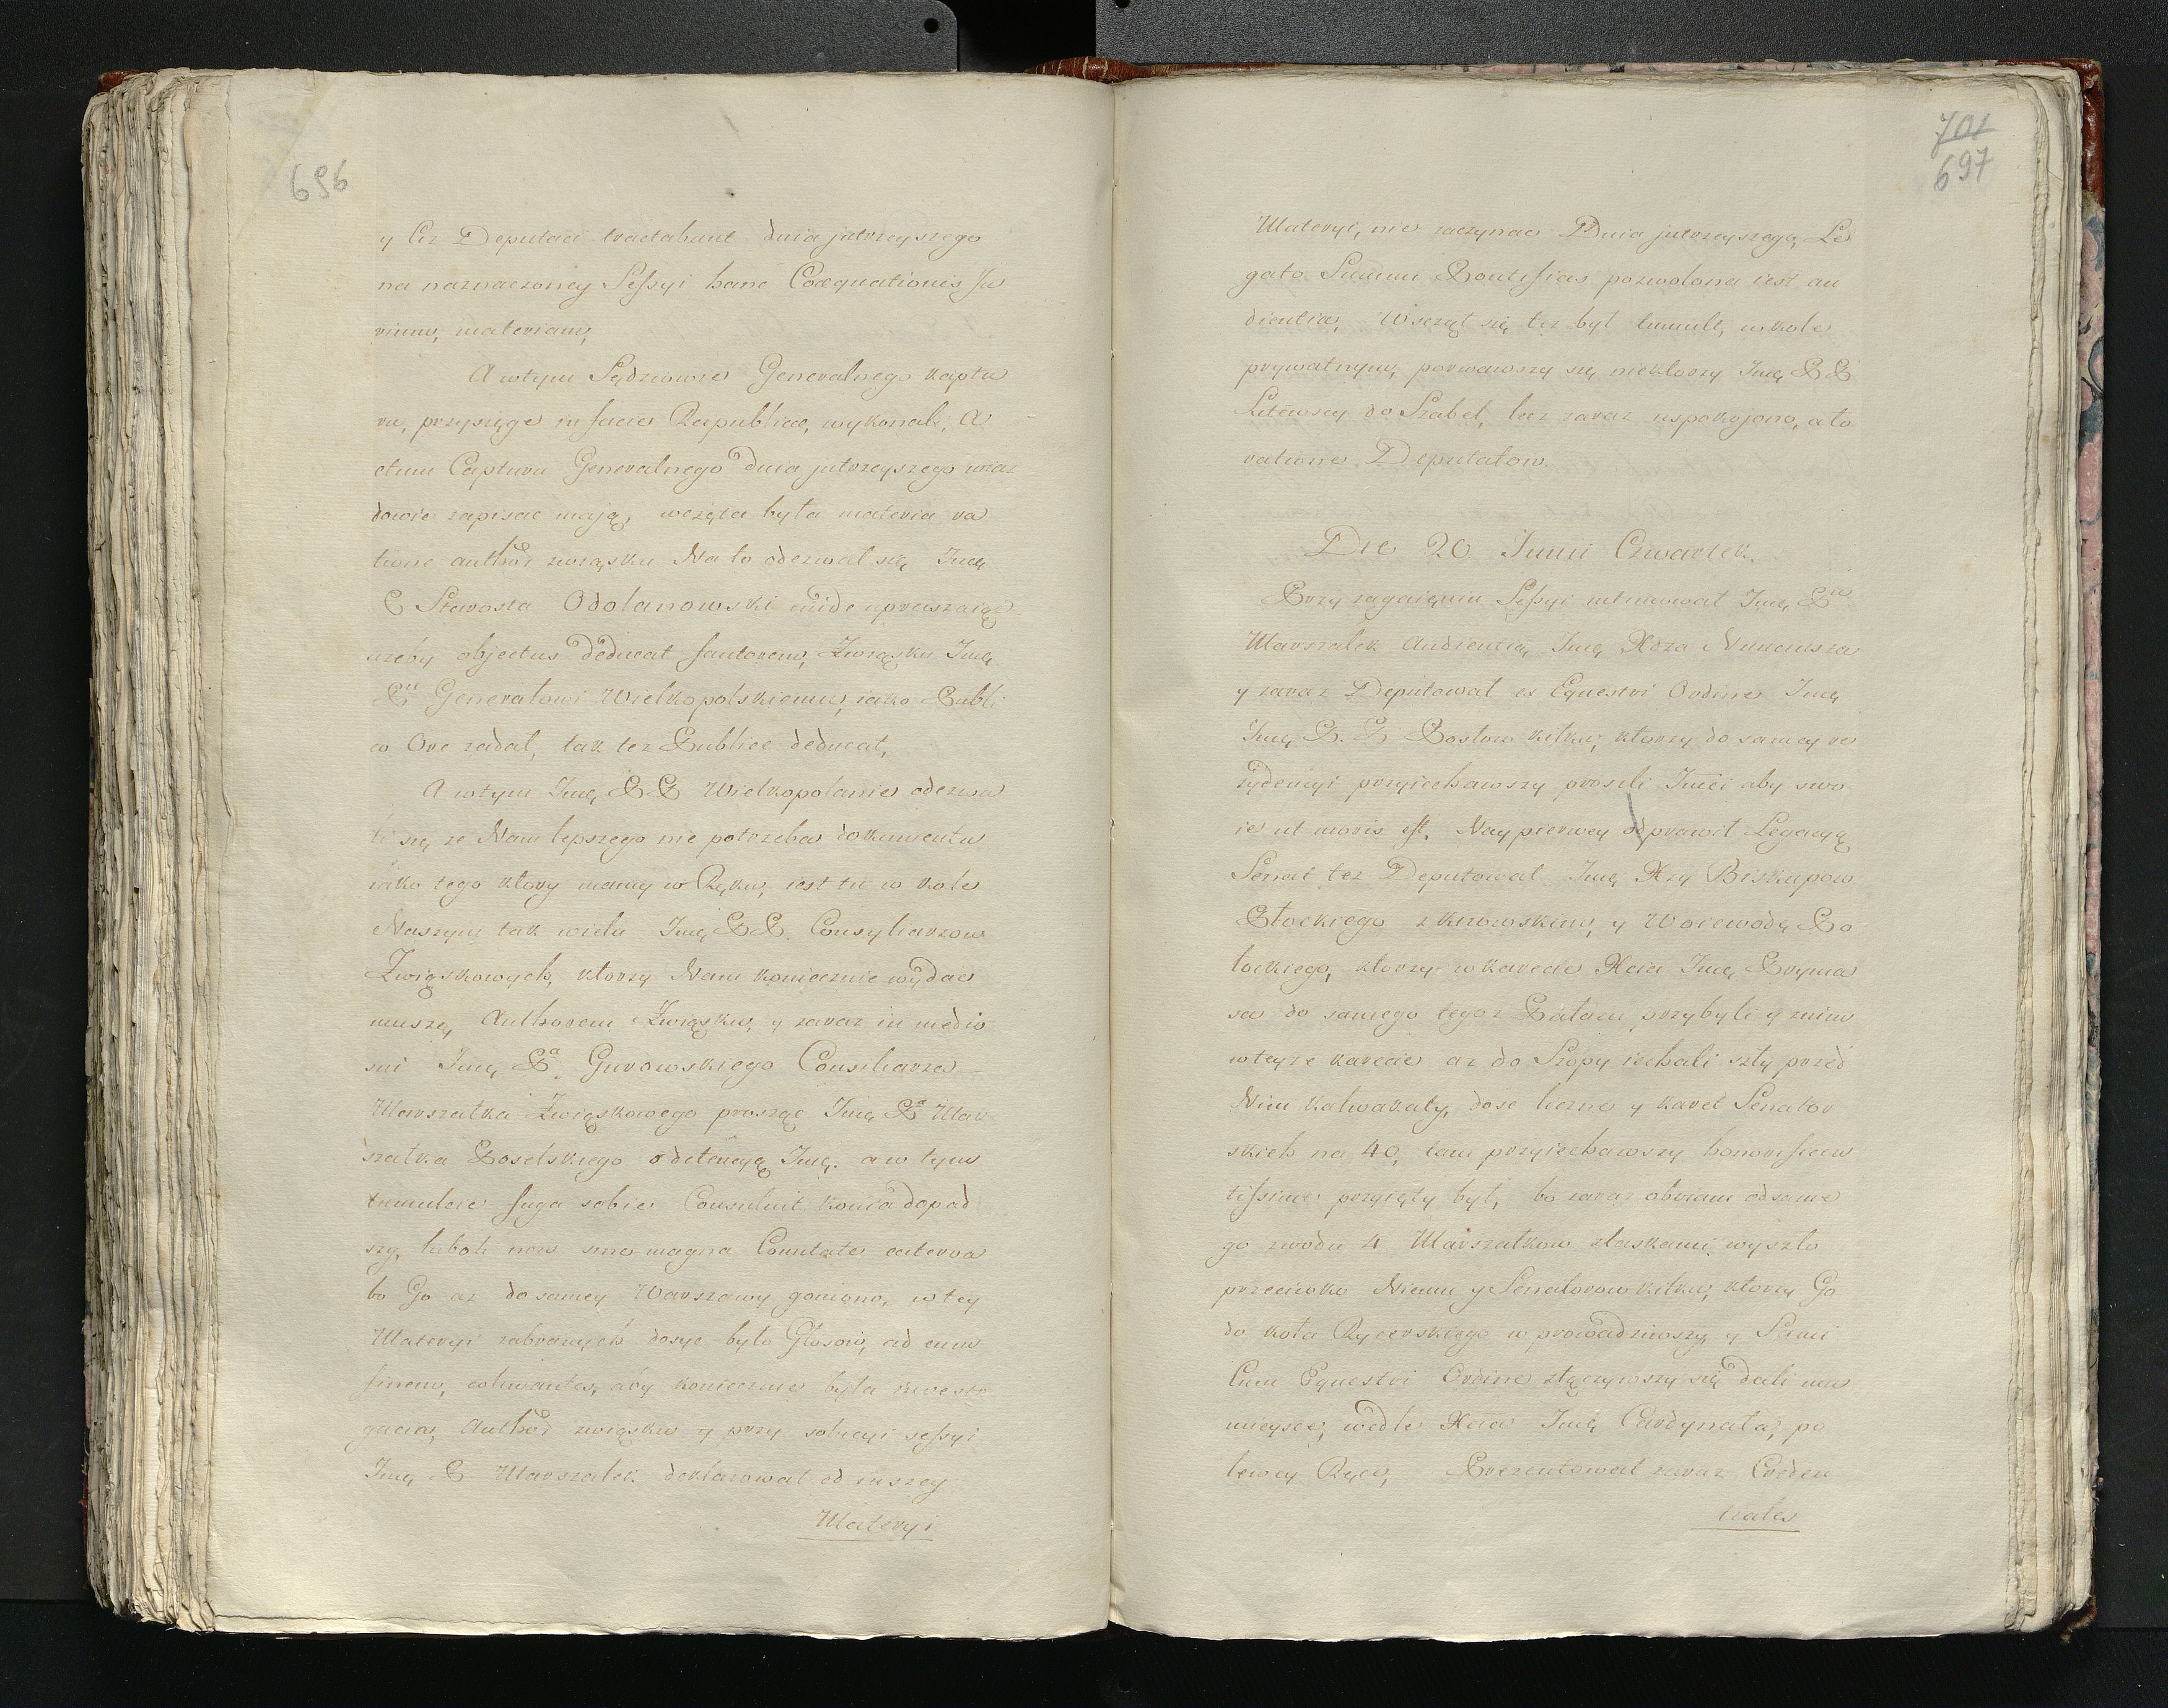 696
y Ciż Deputaci tractabunt dnia jutrzeyszego
na naznaczoney Seſsyi hanc Coæquationis Ju
rium, materiam,
A wtym Sędziowie Generalnego Kaptu
ru, przysięgę in facie Reipublicæ, wykonali, A
ctum Capturu Generalnego dnia jutrzeyszego
zapisac mają, wczęta była materia ra
tione author związku Na to odezwał się Jmę
P Starosta Odolanowski upraszaiąc
ażeby objectus deducat fautorem, Związku Jmę
Pu Generałowi Wielkopolskiemu, iako Publi
co Ore zadał, tak też Publice deducat,
A wtym Jmę PP Wielkopolanie odezwa
li się, że Nam lepszego nie potrzeba dokumentu
iako tego ktory mamy w Ręku, iest tu w kole
Naszym tak wielu Jmę PP. Consyliarzow
Związkowych, ktorzy Nam koniecznie wydac
muszą, Authorem Związku, y zaraz in medio
sui Jmę Pa. Gurowskiego Consiliarza
Marszałka Związkowego prosząc Jmę Pa Mar
szałka Poselskiego o detencyą Jmę. a w tym
tumulcie fuga sobie Consuluit konia dopad
szy, luboli non sine magna Comitate caterva
bo Go aż do samey Warszawy goniono, w tey
Materyi zabranych dosyc było Głosow, ad eum
finem, aby koniecznie była investi
gacia, Author związku y przy solucyi seſsyi
Jmę P Marszałek deklarował od inszey
Materyi

701
697
Materyi, nie zaczynac Dnia jutrzeyszego, Le
gato Summi Pontificis pozwolona iest au
diencia, Wszczął się też był tumult, w kole
prywatnym, porwawszy się niektorzy Jmę PP
Litewscy do Szabel, lecz zaraz uspokojono, a to
ratione Deputatow.
Die 20 Junii Czwartek.
Przy zagaieniu Seſsyi intimował Jmę Pn
Marszałek Audiencią Jmę Xdza Nunciusza
y zaraz Deputował ex Equestri Ordine Jmę
Jmę P. P Posłow kilku, ktorzy do samey re
zydencyi przyiechawszy prosili Jmci aby swo
ie ut moris est. Naypierwey odprawił Legacyą
Senat też Deputował Jmę Xzy Biskupow
Płockiego z Kiiowskim, y Woiewodę Po
łockiego, ktorzy w karecie Xcia Jmę Pryma
sa do samego tegoż Pałacu przybyli y z nim
w teyże karecie aż do Szopy iechali szły przed
Nim kalwakaty, dosc liczne y karet Senator
skich na 40, tam przyiechawszy honorificen
tiſsime przyięty był, bo zaraz obviam od same
go zwodu 4 Marszałkow z laskami wyszło
przeciwko Niemu y Senatorow kilku, ktorzy Go
do koła Rycerskiego wprowadziwszy, y Sami
Cum Equestri Ordine złączywszy się dali mu
mieysce, wedle Xcia Jmę Cardynała, po
lewey Ręce, Prezentował zaraz Creden
tiales